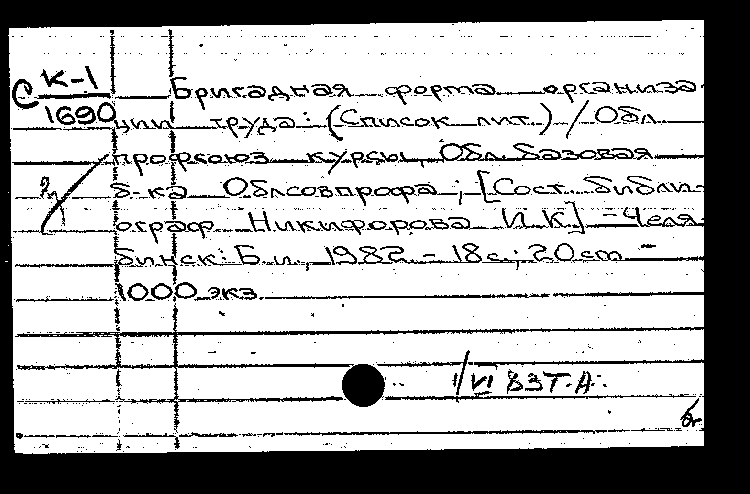 С К-1
1690
Бригадная форма организа-
ции труда: (Список лит.) / Обл.
профсоюз. курсы, Обл. базовая
б-ка Облсовпрофа; [Сост. библи-
ограф Никифорова И.К.] - Челя-
бинск: Б.и., 1982. - 18 с.; 20 см -
1000 экз.
1/VI 83 Т.А.